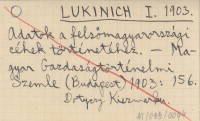 LUKINICH I. 1903.
Adatok a felsőmagyarországi
céhek történetéhez. — Ma-
gyar Gazdaságtörténelmi
Szemle (Budapest) 1903: 156.